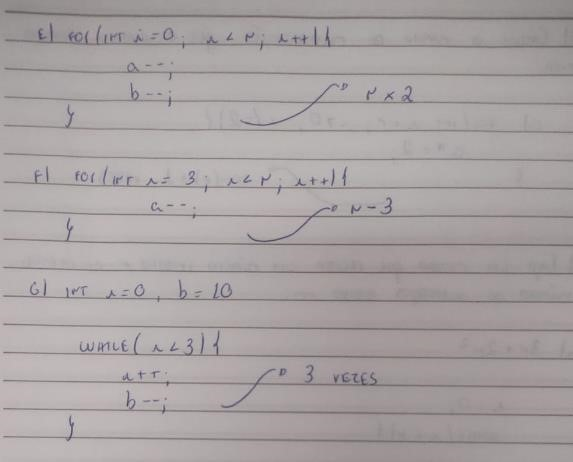 E) FOR(INT i=0; i<N; i++){
a--;
b--;
} → N x 2
F) FOR(INT i=3; i<N; i++){
a--;
} → N-3
G) INT i=0, b=10
WHILE(i<3){
i++;
b--; → 3 VEZES
}